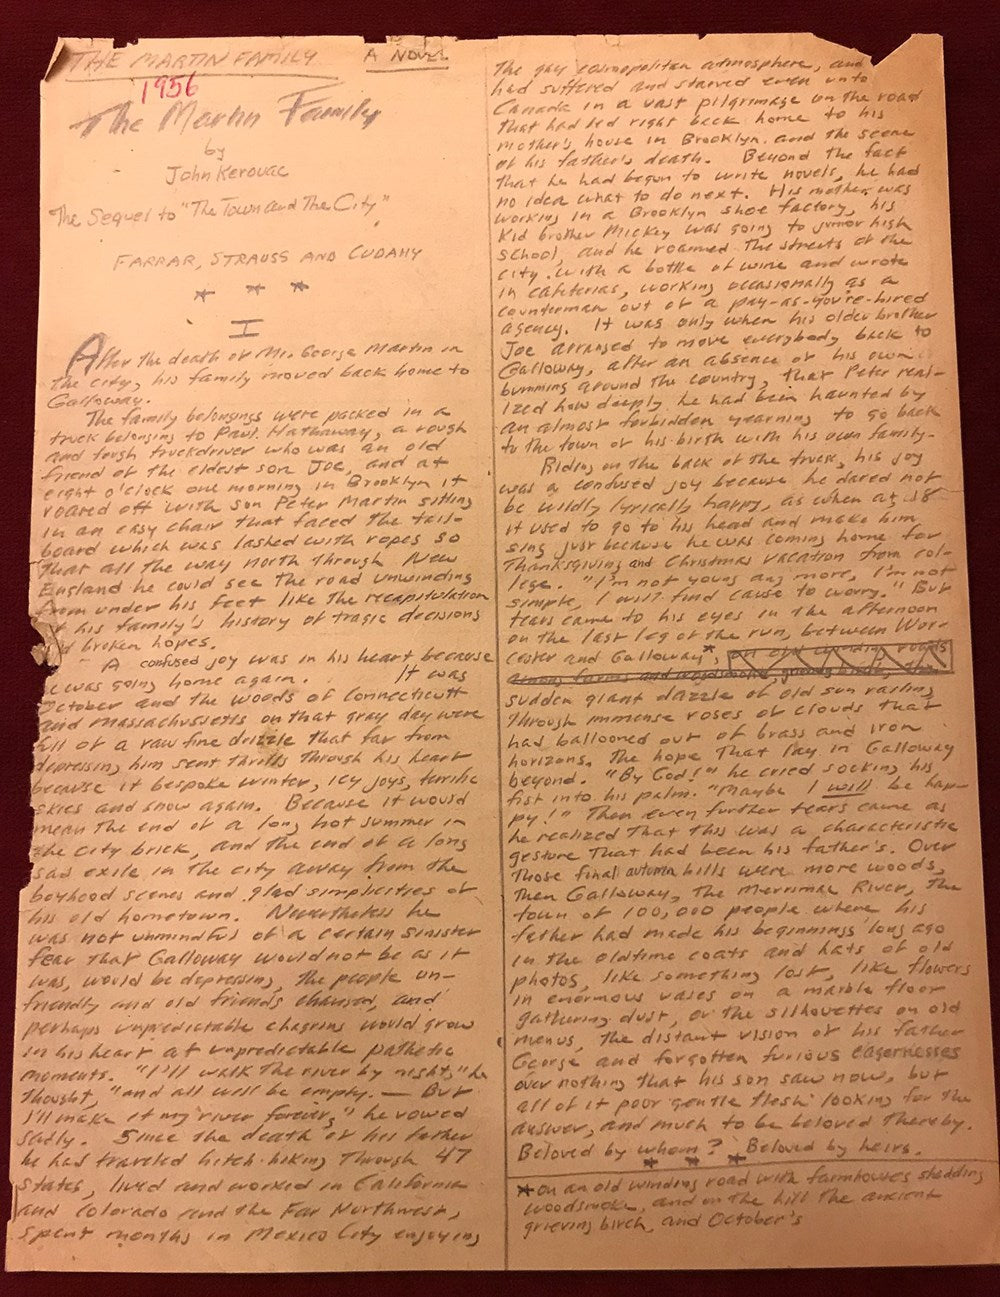 THE MARTIN FAMILY
A NOVEL
1956
The Martin Family
by
John Kerouac
The Sequel to "The Town and The City"
FARRAR, STRAUSS AND CUDAHY
* * *
I
After the death of Mr. George Martin in
the city, his family moved back home to
Galloway.
The family belongings were packed in a
truck belonging to Paul Hathaway, a rough
and tough truckdriver who was an old
friend of the eldest son Joe, and at
eight o'clock one morning in Brooklyn it
roared off with son Peter Martin sitting
in an easy chair that faced the tail-
board which was lashed with ropes so
that all the way north through New
England he could see the road unwinding
from under his feet like the recapitulation
of his family's history of tragic decisions
and broken hopes.
A confused joy was in his heart because
he was going home again. It was
October and the woods of Connecticutt
and Massachussetts on that gray day were
full of a raw fine drizzle that far from
depressing him sent thrills through his heart
because it bespoke winter, icy joys, terrific
skies and snow again. Because it would
mean the end of a long hot summer in
the city brick, and the end of a long
sad exile in the city away from the
boyhood scenes and glad simplicities of
his old hometown. Nevertheless he
was not unmindful of a certain sinister
fear that Galloway would not be as it
was, would be depressing, the people un-
friendly and old friends changed, and
perhaps unpredictable chagrins would grow
in his heart at unpredictable pathetic
moments. "I'll walk the river by night," he
thought, "and all will be empty. — But
I'll make it my river forever," he vowed
sadly. Since the death of his father
he had traveled hitch-hiking through 47
states, lived and worked in California
and Colorado and the Far Northwest,
spent months in Mexico City enjoying
the gay cosmopolitan atmosphere, and
had suffered and starved even unto
Canada in a vast pilgrimage on the road
that had led right back home to his
mother's house in Brooklyn and the scene
of his father's death. Beyond the fact
that he had begun to write novels, he had
no idea what to do next. His mother was
working in a Brooklyn shoe factory, his
kid brother Mickey was going to junior high
school, and he roamed the streets of the
city with a bottle of wine and wrote
in cafeterias, working occasionally as a
counterman out of a pay-as-you're-hired
agency. It was only when his older brother
Joe arranged to move everybody back to
Galloway, after an absence of his own
bumming around the country, that Peter real-
ized how deeply he had been haunted by
an almost forbidden yearning to go back
to the town of his birth with his own family.
Riding on the back of the truck, his joy
was a confused joy because he dared not
be wildly lyrically happy, as when at 18
it used to go to his head and make him
sing just because he was coming home for
Thanksgiving and Christmas vacation from col-
lege. "I'm not young any more, I'm not
simple, I will find cause to worry." But
tears came to his eyes in the afternoon
on the last leg of the run, between Wor-
cester and Galloway*, on old winding roads
among farms and woodsmoke,
sudden giant dazzle of old sun railing
through immense roses of clouds that
had ballooned out of brass and iron
horizons. The hope that lay in Galloway
beyond. "By God!" he cried socking his
fist into his palm. "Maybe I will be hap-
py!" Then even further tears came as
he realized that this was a characteristic
gesture that had been his father's. Over
those final autumn hills were more woods,
then Galloway, the Merrimac River, the
town of 100,000 people where his
father had made his beginnings long ago
in the oldtime coats and hats of old
photos, like something lost, like flowers
in enormous vases on a marble floor
gathering dust, or the silhouettes on old
menus, the distant vision of his father
George and forgotten furious eagernesses
over nothing that his son saw now, but
all of it poor gentle flesh looking for the
answer, and much to be beloved thereby.
Beloved by whom? Beloved by heirs.
* * *
*on an old winding road with farmhouses shedding
woodsmoke, and on the hill the ancient
grieving birch, and October's